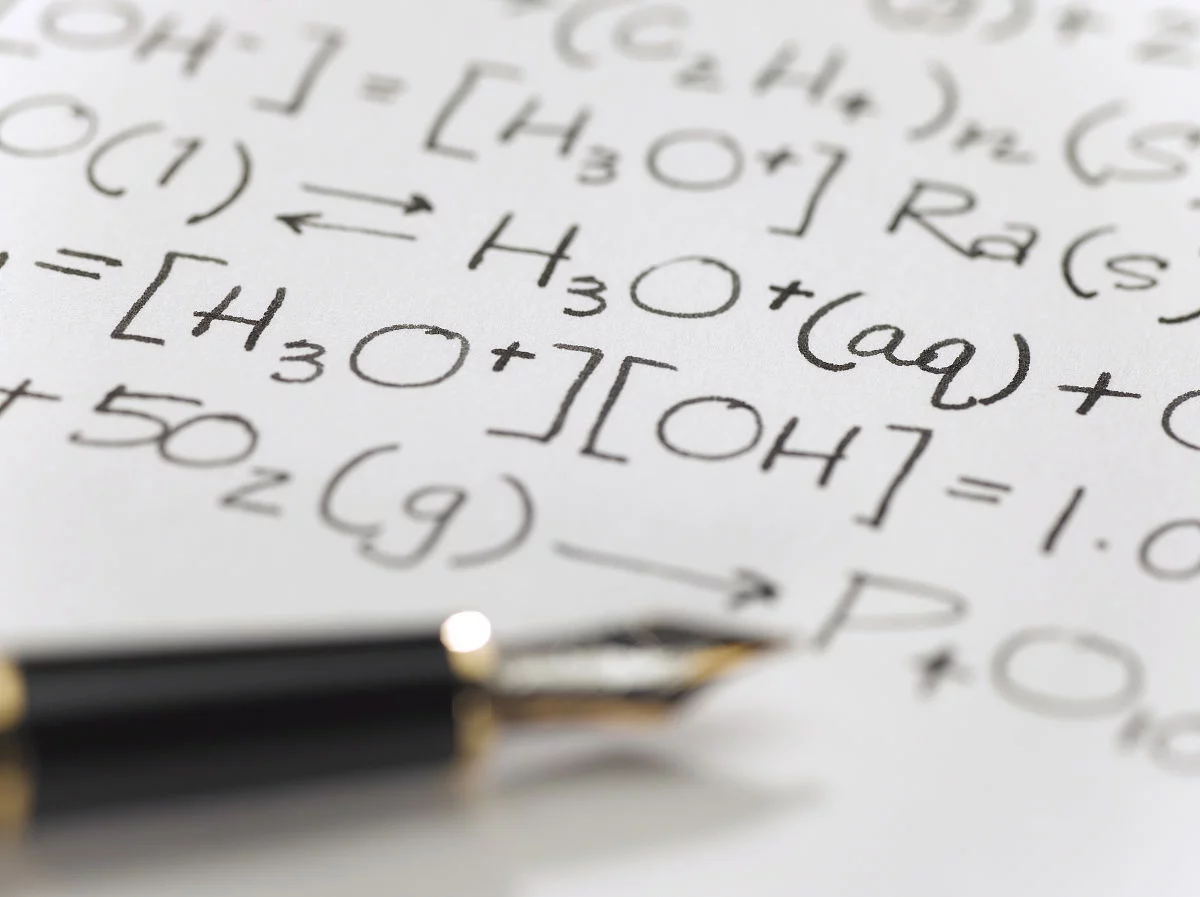 (s) + 2
(C₂H₄)n (s
[OH⁻] = [H₃O⁺] Ra(s)
O(1) ⇌ H₃O⁺(aq) +
= [H₃O⁺][OH] = 1.0
+ 5O₂(g) → P₄O₁₀